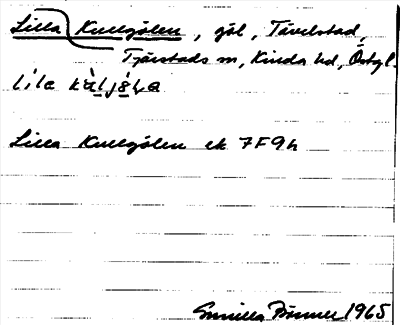 Lilla Kullgölen, göl, Tåvelstad,
Tjärstads sn, Kinda hd, Östgl.
Lilla Kullgölen ek 7F9h
Gunilla 1965